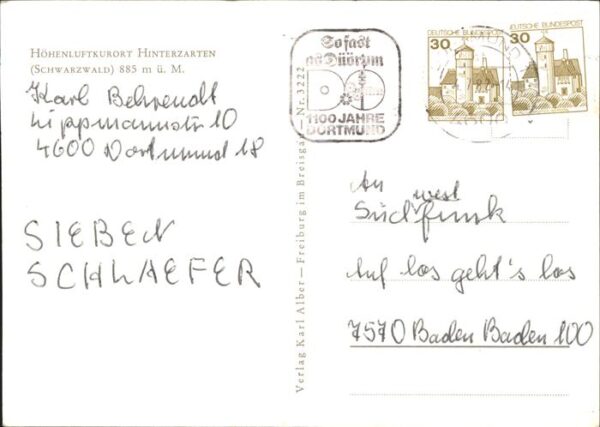 HÖHENLUFTKURORT HINTERZARTEN
(SCHWARZWALD) 885 m ü. M.
Karl Behrendt
Lippmannstr 10
4600 Dortmund 18
SIEBEN
SCHLAEFER
Verlag Karl Alber – Freiburg im Breisgau – Nr. 3222
So fast
as Düörpm
DO
1100 JAHRE
DORTMUND
DEUTSCHE BUNDESPOST
30
DEUTSCHE BUNDESPOST
30
An
Südwestfunk
Auf los geht's los
7570 Baden Baden 100